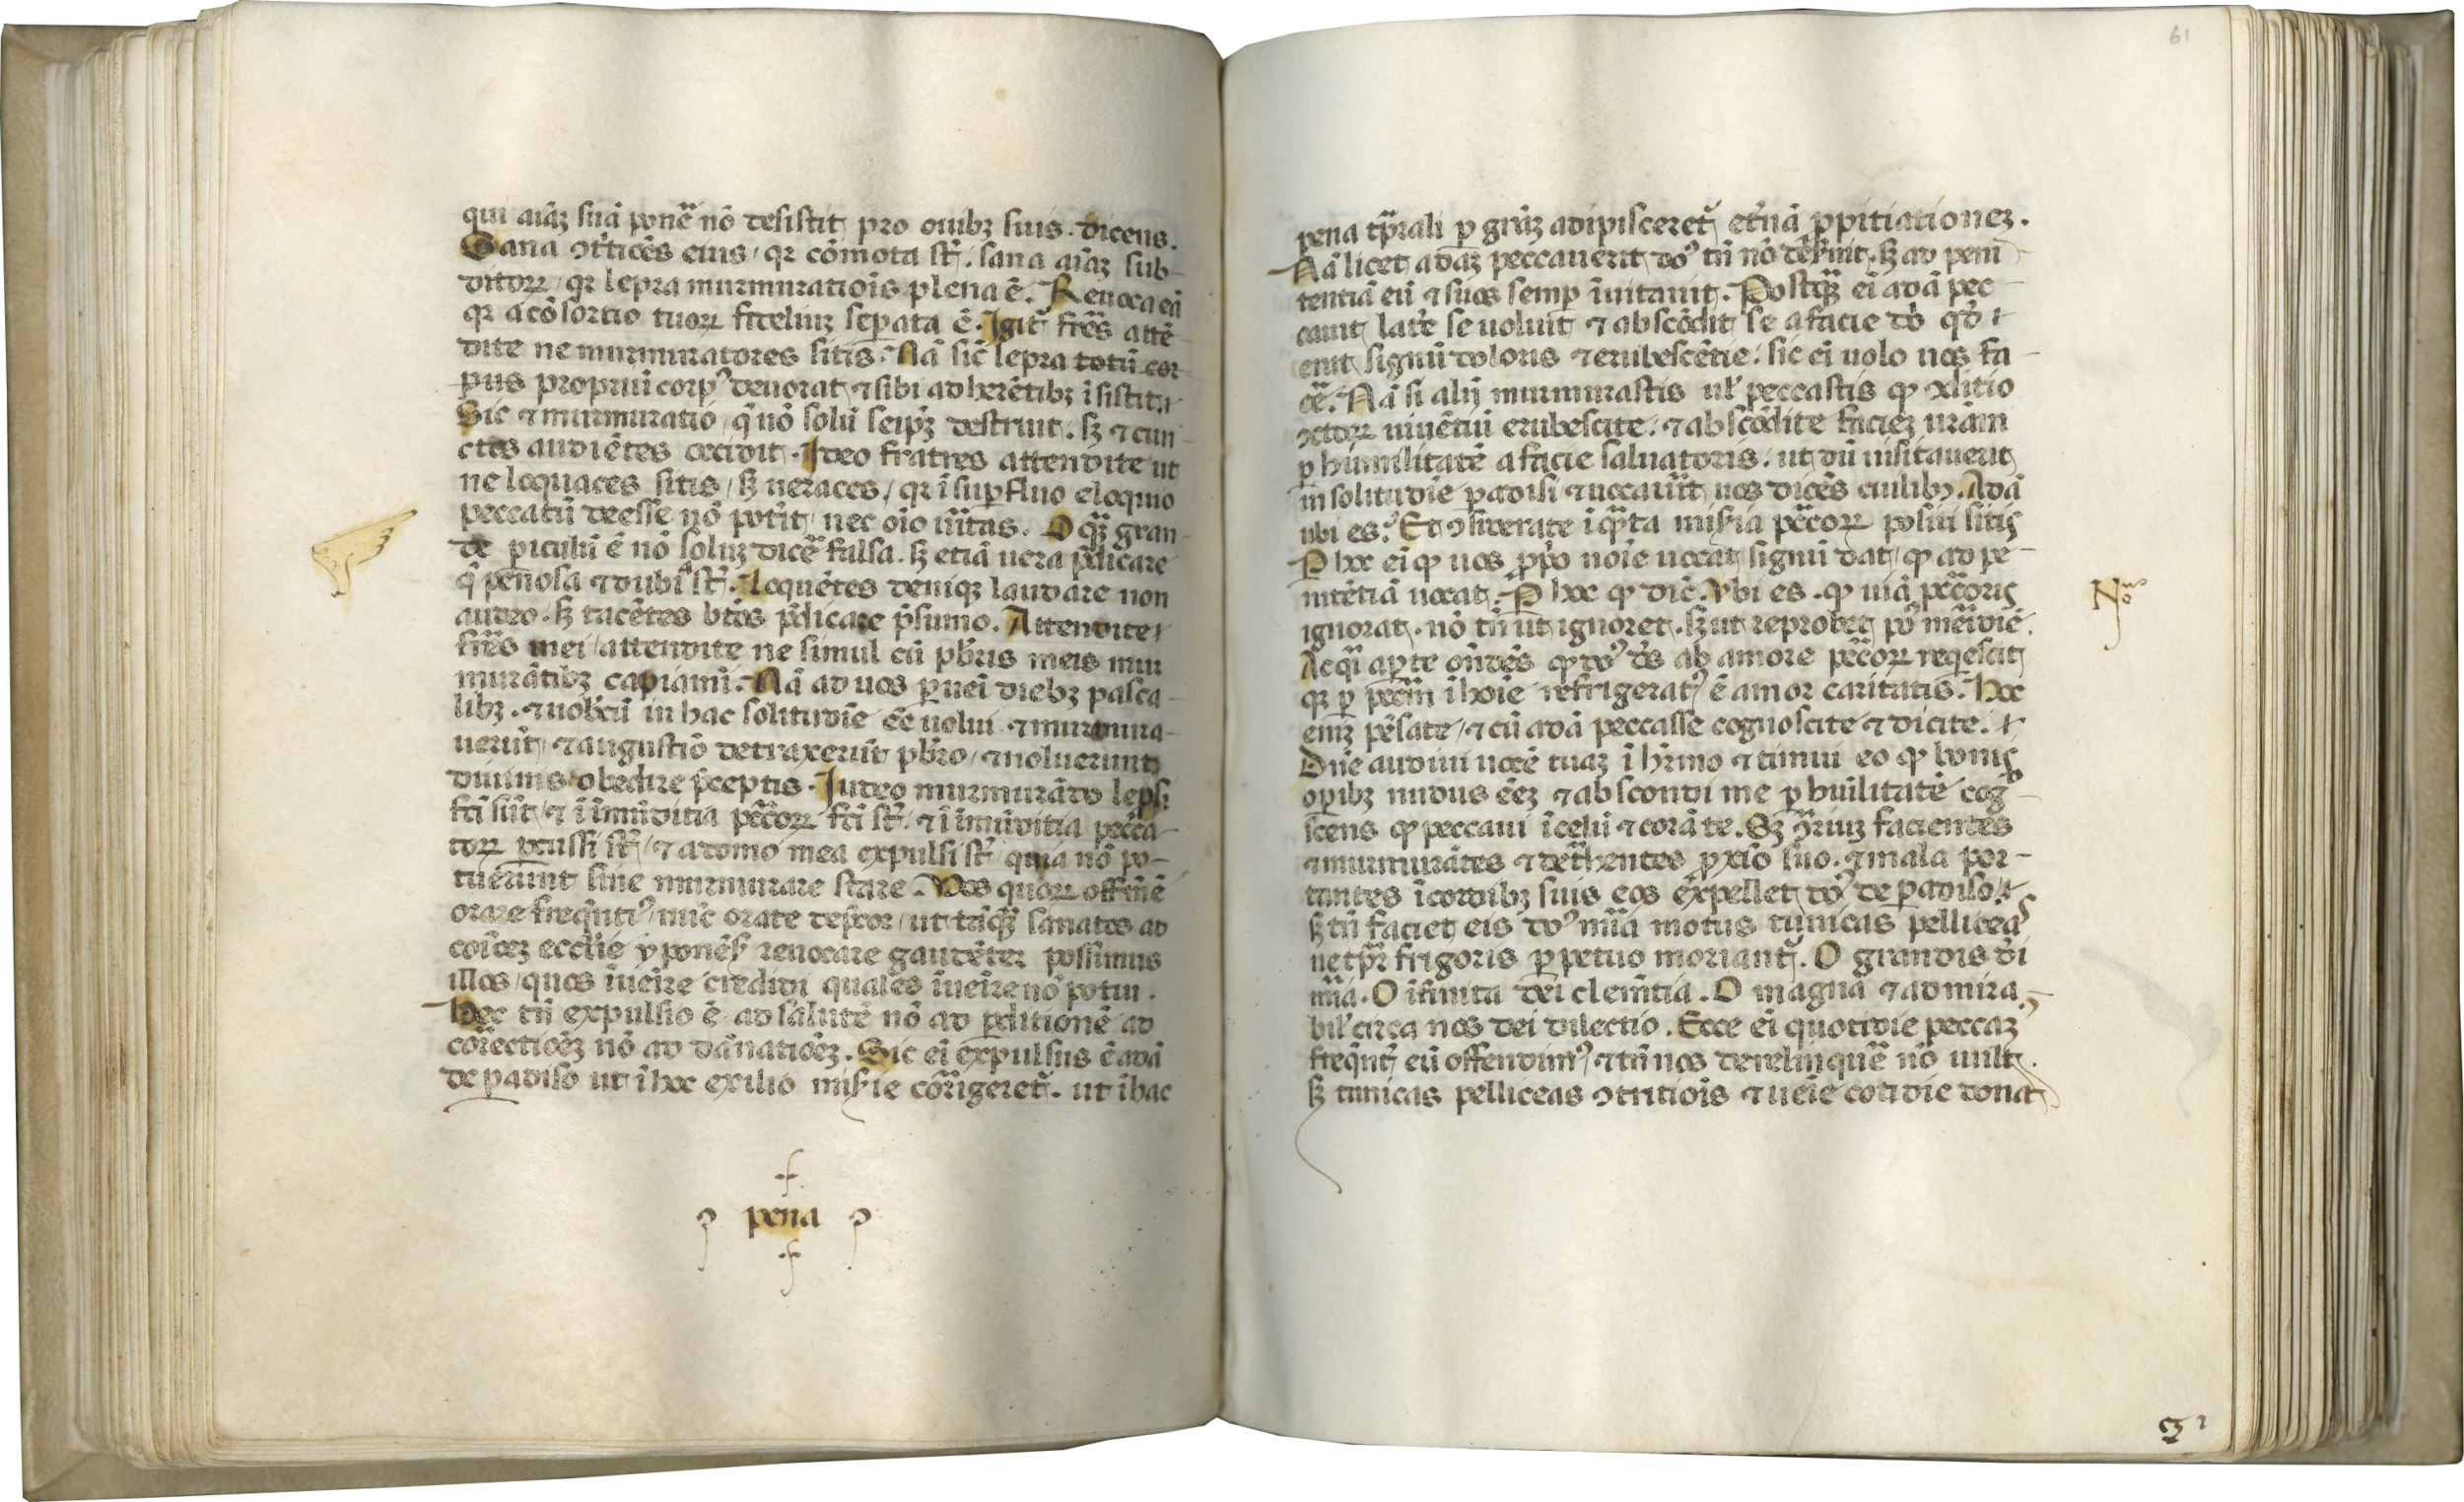 qui aīaꝫ suā ponē nō desistit pro ouibꝫ suis. dicens.
Sana ↄtⁱtiōēs eius / qꝛ cōmota sт̄. sana aīaꝫ sub-
ditoꝝ / qꝛ lepra murmuratiōis plena ē. Reuoca eā
qꝛ a cōsortio tuoꝝ fideliuꝫ seꝑata ē. Igit̄ fr̄es attē-
dite ne murmuratores sitis. Nā sic̄ lepra totū cor-
pus propriū corpꝰ deuorat ⁊ sibi adherētibꝫ īsistit.
Sic ⁊ murmuratio / q̄ nō solū seip̄ꝫ destruit. sꝫ ⁊ cun-
ctos audiētes occidit. Ideo fratres attendite ut
ne loquaces sitis / sꝫ ueraces / qꝛ ī suꝑfluo eloquio
peccatū deesse nō poťit / nec oīo ūitas. O qꝫ gran-
de ꝑiculū ē nō soluꝫ dicē falsa. sꝫ etiā uera p̄dicare
q̄ penosa ⁊ dubia sт̄. Loquētes deniqꝫ laudare non
audeo. sꝫ tacētes btōs p̄dicare p̄sumo. Attendite
fr̄es mei / attendite ne simul cū pb̄ris meis mur
murātibꝫ capiāmī. Nā ad uos ꝑueī diebꝫ pasca-
libꝫ. ⁊ uobcū in hac solitudīe eē uolui ⁊ murmura-
uerūt / ⁊ augustīō detraxerūt pb̄ro / ⁊ noluerunt
diuinis obedire p̄ceptis. Iudeo murmurādo lep̄si
fc̄i sūt / ⁊ ī īmūditia pc̄c̄oꝝ fc̄i sт̄. ⁊ ī īmūditia pecc̄a-
toꝝ ꝑcussi sт̄ / ⁊ a domo mea expulsi sт̄ quia nō po-
tuerunt sine murmurare stare. Vos quoꝝ offm̄ ē
orare freq̄ntiꝰ / nūc orate dep̄cor / ut tāqꝫ sanatos ad
coīōeꝫ ecclīe yponēs̄ reuocare gaudēter possimus
illos / quos īueīre credidi quales īueīre nō potui.
Hec tn̄ expulsio ē ad salutē nō ad ꝑditionē ad
correctiōeꝫ nō ad dānatiōeꝫ. Sic eī expulsus ē adā
de ꝑadiso ut ī hoc exilio mis̄ie corrigeret̄. ut ī hac
pena
61
pena tp̄rali ꝑ grāꝫ adipisceret̄ et̄nā ꝓpitiationeꝫ.
Nā licet adaꝫ peccauerit dō tn̄ nō dēs̄uit. sꝫ ad peni
tentiā eū ⁊ suos semꝑ īuitauit. Postqꝫ eī adā pec-
cauit laťe se uoluit ⁊ abscōdit se a facie dī qd̄
erit signū doloris ⁊ erubescētie. sic eī uolo uos fa-
cē. Nā si aly murmurastis ul̄ peccastis ꝙ
uiuētiū erubescite. ⁊ abscōdite facieꝫ ur̄am
ꝑ humilitatē a facie saluatoris. ut dū uisitauerit
in solitudīe ꝑadisi ⁊ uocauīt uos dicēs cuilibꝫ. Adā
ubi es. Et ↄsiderate ī qn̄ta mis̄ia pc̄c̄oꝝ positi sitis
P hoc eī ꝙ uos ꝓpo noīe uocat signū dat / ꝙ ad pe-
nitētiā uocat. P hoc ꝙ dic̄. Vbi es. ꝙ uiā pc̄c̄oris
ignorat. nō tn̄ ut ignoret. sꝫ ut reprobet pꝰ meīdiē.
Ac qī aꝑte on̄dēs ꝙ dō dś ab amore pc̄c̄oꝝ reqescit
qꝛ ꝑ pcc̄m ī hoīe refrigeratꝰ ē amor caritatis. Hoc
eniꝫ pēsate / ⁊ cū adā peccasse cognoscite ⁊ dicite.
Dn̄e audiui uocē tuaꝫ ī hr̄mo ⁊ timui eo ꝙ bonis
oꝑibꝫ nudus ēeꝫ ⁊ abscondi me ꝑ huīlitatē cog̊-
scens ꝙ peccaui ī celū ⁊ corā te. Sꝫ ↄ̄riuꝫ facientes
⁊ murmurātes ⁊ det̄hentes ꝓxīo suo. ⁊ mala por-
tantes ī cordibꝫ suis eos expellet dō de ꝑadiso
sꝫ tn̄ faciet eis dō mīa motus tunicas pelliceas
ne tp̄r frigoris ꝑpetuo moriant̄. O grandis dī
mīa. O īfinita dei clem̄tia. O magna ⁊ admira-
bil̄ circa nos dei dilectio. Ecce eī quotidie peccaꝫ
freq̄nt̄ eū offendimꝰ / ⁊ tn̄ nos derelinquē nō uult.
sꝫ tunicas pelliceas ↄtritiōis ⁊ ueīe cotidie donat